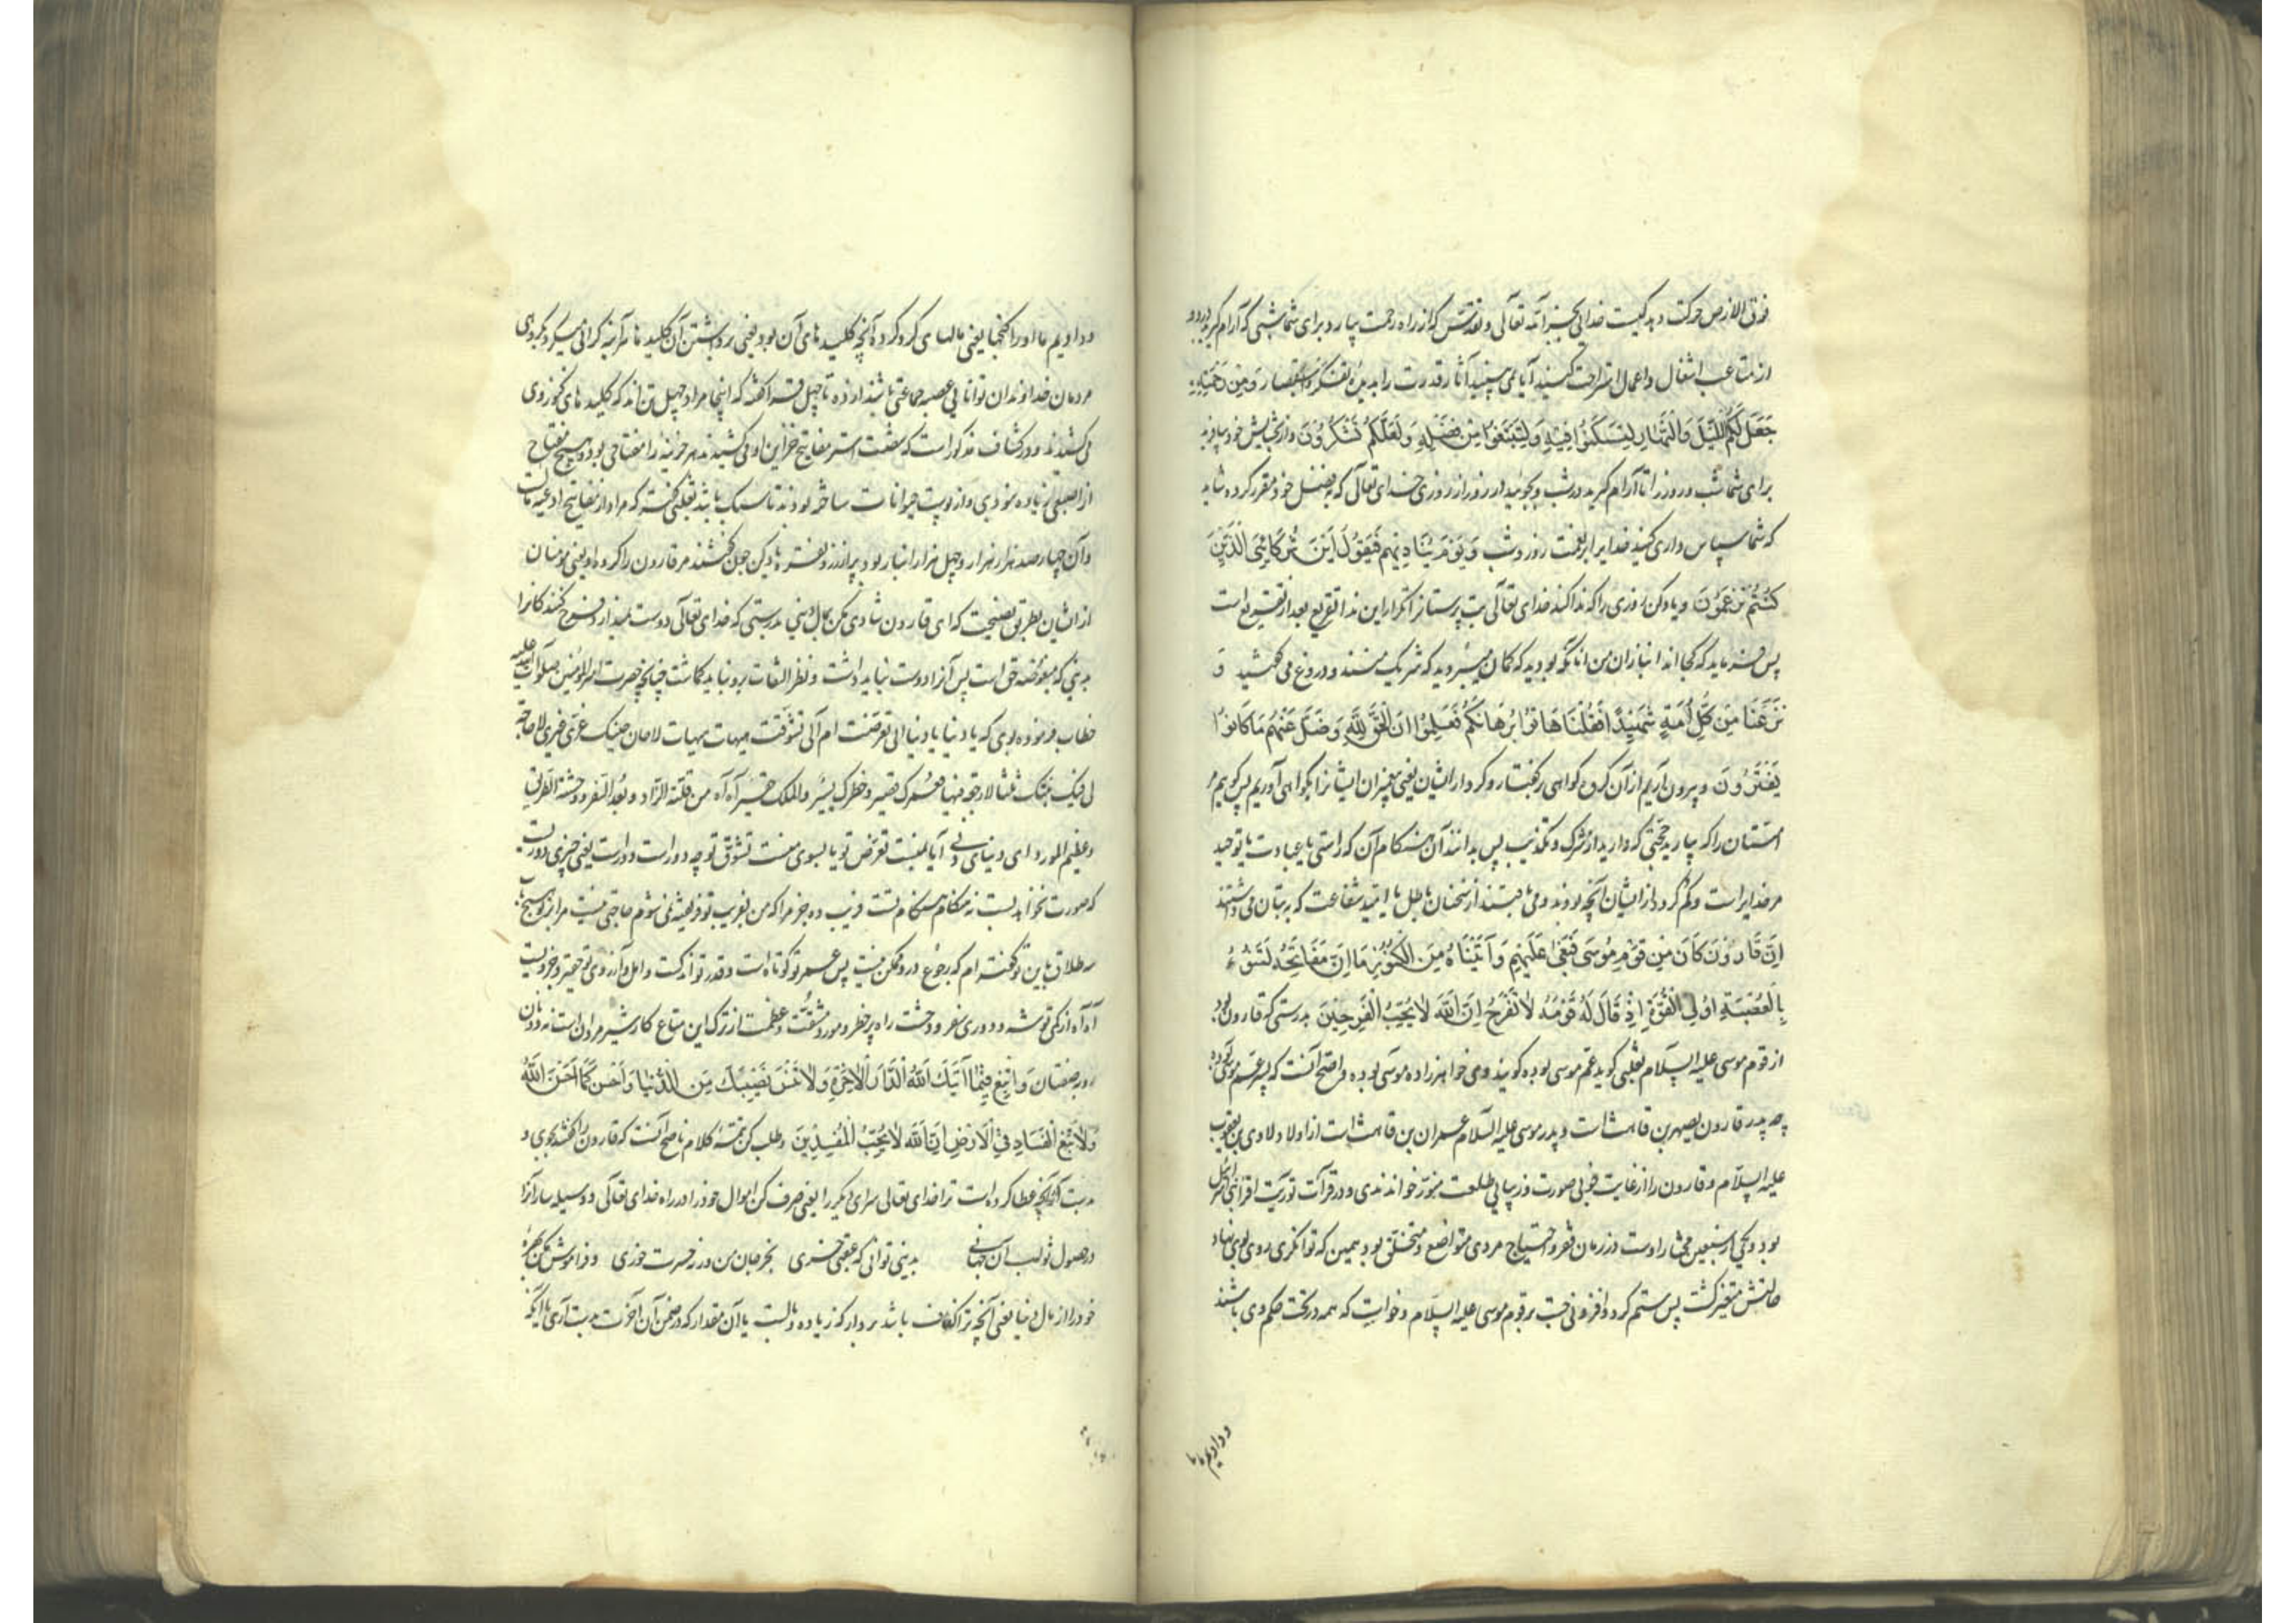 فوق الارض حرکت دهد کیست خدائی بجز الله تعالی و تقدس که از راه رحمت بیارد برای شما شبی که آرام گیرید درو و
از متاعب اشغال و اعمال استراحت کنید آیا نمی بینید آثار قدرت را بدیدهٔ تفکر و استبصار وَمِنْ رَحْمَتِهِ
جَعَلَ لَكُمُ اللَّيْلَ وَالنَّهَارَ لِتَسْكُنُوا فِيهِ وَلِتَبْتَغُوا مِنْ فَضْلِهِ وَلَعَلَّكُمْ تَشْكُرُونَ و از بخشایش خود بیافرید
برای شما شب و روز را تا آرام گیرید در شب و بجوئید در روز از روزی خدای تعالی که بفضل خود مقرر کرده شاید
که شما سپاس داری کنید خدایرا بر نعمت روز و شب وَيَوْمَ يُنَادِيهِمْ فَيَقُولُ أَيْنَ شُرَكَائِيَ الَّذِينَ
كُنْتُمْ تَزْعُمُونَ و یاد کن روزی را که ندا کند خدای تعالی بت پرستانرا تکرار این ندا تقریع بعد از تقریع است
پس فرماید که کجا اند انبازان من آنانکه بودید که گمان میبردید که شریک منند و دروغ می گفتید وَ
نَزَعْنَا مِنْ كُلِّ أُمَّةٍ شَهِيدًا فَقُلْنَا هَاتُوا بُرْهَانَكُمْ فَعَلِمُوا أَنَّ الْحَقَّ لِلَّهِ وَضَلَّ عَنْهُمْ مَا كَانُوا
يَفْتَرُونَ و بیرون آریم از آن گروه گواهی بر گفتار و کردار ایشان یعنی پیغبران ایشانرا بگواهی آوریم پس گوییم
امتان را که بیارید حجتی که دارید از شرک و تکذیب پس بدانند آن هنگام آن که راستی یا عبادت یا توحید
مر خدایراست و گم گردد از ایشان آنچه بودند و می بافتند از سخنان باطل یا امید شفاعت که به بتان می داشتند
إِنَّ قَارُونَ كَانَ مِنْ قَوْمِ مُوسَى فَبَغَى عَلَيْهِمْ وَآتَيْنَاهُ مِنَ الْكُنُوزِ مَا إِنَّ مَفَاتِحَهُ لَتَنُوءُ
بِالْعُصْبَةِ أُولِي الْقُوَّةِ إِذْ قَالَ لَهُ قَوْمُهُ لَا تَفْرَحْ إِنَّ اللَّهَ لَا يُحِبُّ الْفَرِحِينَ بدرستی که قارون بود
از قوم موسی علیه السلام ثعلبی گوید عم موسی بوده گویند وی خواهرزاده موسی بوده و اصح آنست که پسر عم موسی بوده
چه پدر قارون یصهر بن قاهث است و پدر موسی علیه السلام عمران بن قاهث است از اولاد لاوی بن یعقوب
علیه السلام و قارون را از غایت خوبی صورت و زیبایی طلعت منوّر خواندندی و در قرآت توریت اقرا بنی اسرائیل
بود و یکی از سبعین مختار اوست در زمان فقر و احتیاج مردی متواضع و متخلّق بود همین که توانگری روی بوی نهاد
حالتش متغیر گشت پس ستم کرد و افزونی جست بر قوم موسی علیه السلام و خواست که همه در تحت حکم وی باشند
و دادیم ما
و دادیم ما او را گنجها یعنی مالهای گرد کرده آنچه کلیدهای آن بود یعنی برداشتن آن کلیدها هرآینه گرانی میکرد بگروهی
مردمان خداوندان توانایی عصبه جماعتی باشند از ده تا چهل و گفته که اینجا مراد چهل تن اند که کلیدهای کنوز وی
می کشیدند و در کشاف مذکور است که شصت استر مفاتیح خزاین او می کشیدند هر خزینه را مفتاحی بود و هیچ مفتاح
از اصبعی زیاده نبودی و از پوست حیوانات ساخته بودند تا سبک باشد ثعلبی گفته که مراد از مفاتیح اوعیه مالست
و آن چهار صد هزار هزار و چهل هزار انبار بود پر از زر و نقره یاد کن چون گفتند مر قارون را گروه او یعنی مومنان
از ایشان بطریق نصیحت که ای قارون شادی مکن بمال دنیی بدرستی که خدای تعالی دوست نمیدارد فرح کنندگانرا
بدنیی که مبغوضه حق است پس آنرا دوست نباید داشت و نظر التفات برو نباید گماشت چنانچه حضرت امیرالمؤمنین صلوات الله علیه
خطاب فرموده بوی که یا دنیا یا دنیا الی تعرضت ام الی تشوقت هیهات هیهات لا حان حینک غری غیری لا حاجة
لی فیک طلقتک ثلثا لا رجعة فیها فعمرک قصیر و خطرک یسیر و املک حقیر آه آه من قلة الزاد و بعد السفر و وحشة الطریق
و عظیم المورد ای دنیای دنی آیا بمنست تعرض تو یا بسوی منست تشوق تو چه دورست و دورست یعنی چیزی دورست
که صورت نخواهد بست نه هنگام هنگام تست فریب ده جز مرا که من بفریب تو فریفته نمی شوم حاجتی نیست مرا بتو هیچ
سه طلاق باین تو گفته ام که رجوع درو ممکن نیست پس عمر تو کوتاه است و قدر تو اندکست و امل و آرزوی تو حقیر و خردست
آه آه از کمی توشه و دوری سفر و وحشت راه پرخطر و مورد مشقت و عظمت از ترک این متاع کار شیرمردان است نه دونان
روبه صفتان وَابْتَغِ فِيمَا آتَيكَ اللَّهُ الدَّارَ الْآخِرَةَ وَلَا تَنْسَ نَصِيبَكَ مِنَ الدُّنْيَا وَأَحْسِنْ كَمَا أَحْسَنَ اللَّهُ
وَلَا تَبْغِ الْفَسَادَ فِي الْأَرْضِ إِنَّ اللَّهَ لَا يُحِبُّ الْمُفْسِدِينَ و طلب کن تتمهٔ کلام ناصح آنست که قارون را گفتند بجوی و
بدست آر بآنچه عطا کرده است ترا خدای تعالی سرای دیگر را یعنی صرف کن اموال خود را در راه خدای تعالی و وسیله ساز آنرا
در حصول ثواب آن جهانی بدنیی توانی که عقبی خری بخر جان من ورنه حسرت خوری و فراموش مکن بهرهٔ
خود را از مال دنیا یعنی آنچه ترا کفاف باشد بردار که زیاده وبالست یا آن مقدار که در ضمن آن آخرت بدست آری یا آنکه